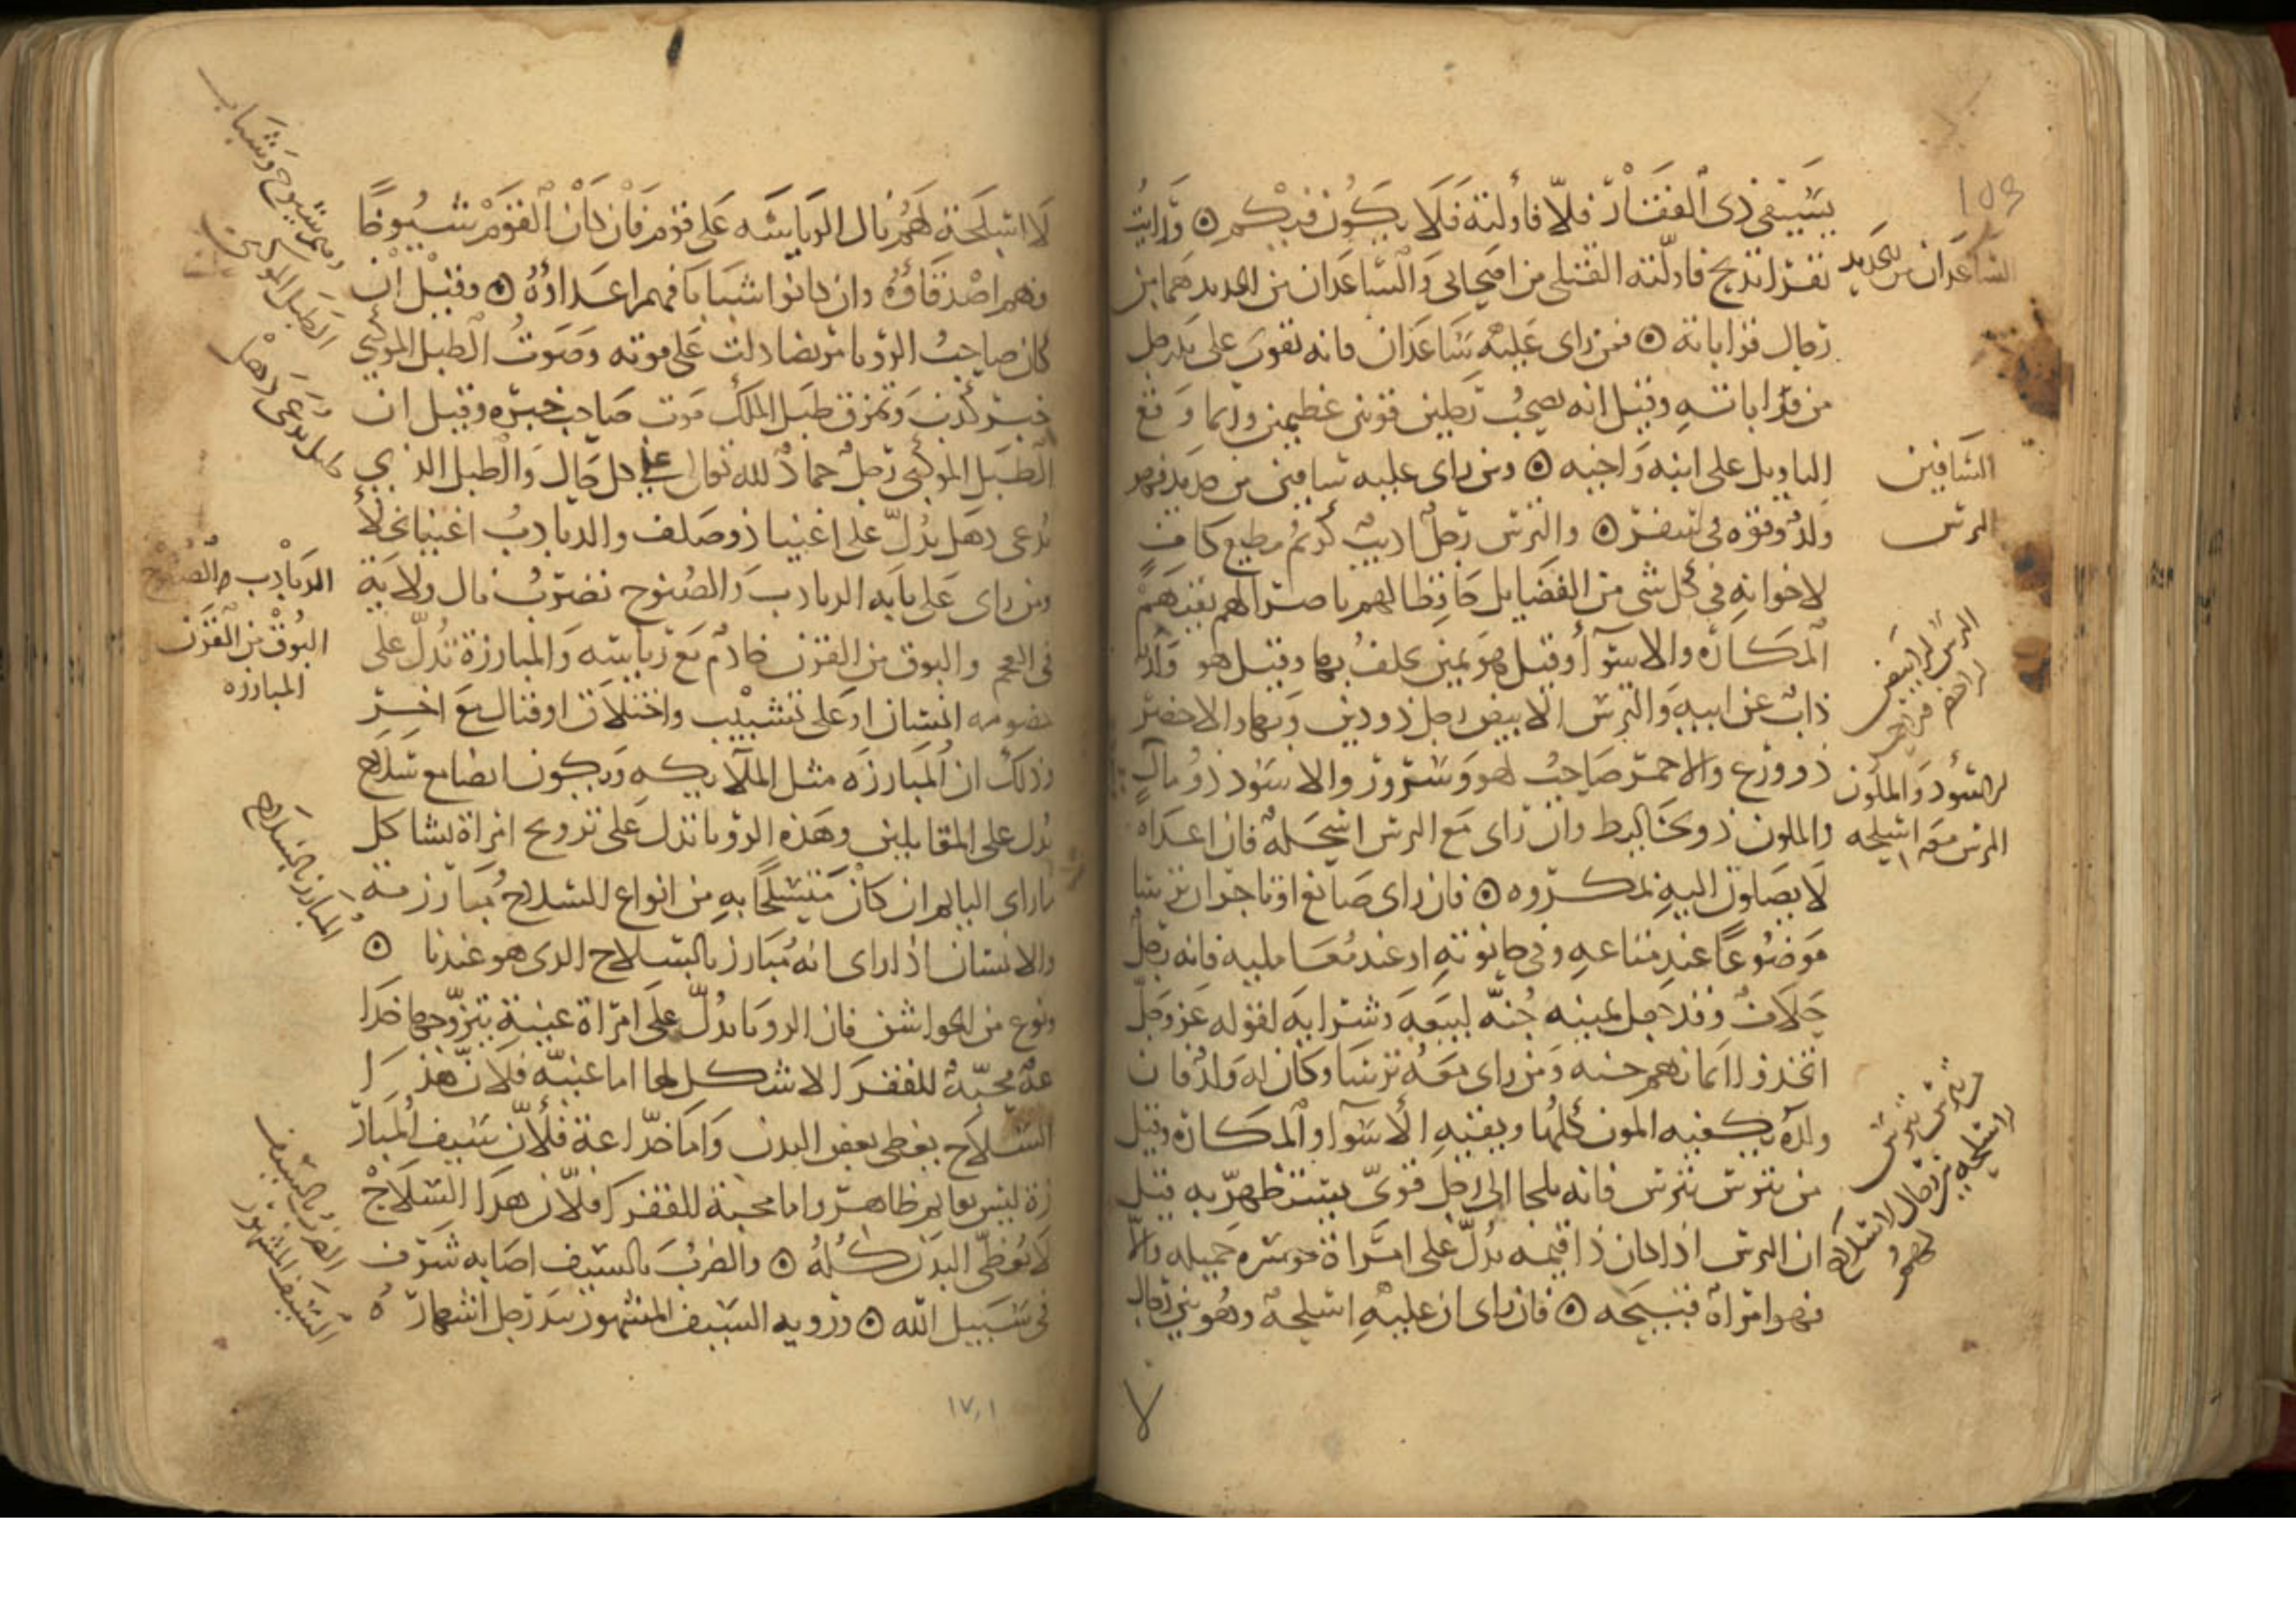 بسيفي ذي الفقار فلا فأولته فلا يكون فيكم ورايت
بقرا تذبح فاولته القتلى من اصحابي والساعدان من الحديد هما من
رجال قراباته فمن راى عليه ساعدان فانه يقوى على يد رجل
من قراباته وقيل انه يصحب رجلين قويين عظيمين وربما وقع
التاويل على ابنه واخيه ومن راى عليه ساقين من حديد فهو
ولد وقوه في سفر والترس رجل اديب كريم مطيع كاف
لاخوانه في كل شي من الفضايل حافظا لهم ناصرا لهم يقيهم
المكاره والاسوآ وقيل هو يمين يحلف بها وقيل هو ولد
ذاب عن ابيه والترس الابيض رجل ذو دين وبهاء والاخضر
ذو ورع والاحمر صاحب لهو وسرور والاسود ذو مال
والملون ذو تخاليط وان راى مع الترس اسلحة فان اعداه
لا يصلون اليه بمكروه فان راى صايغ او تاجر ان ترسا
موضوعا عند متاعه وفي حانوته او عند معامليه فانه رجل
حلاف وقد جعل يمينه جنه لبيعه وشرايه لقوله عز وجل
اتخذوا ايمانهم جنه ومن راى معه ترسا وكان له ولد فان
ولده يكفيه المون كلها ويقيه الاسوا والمكاره وقيل
من تترس بترس فانه يلجا الى رجل قوي يستظهر به قيل
ان الترس اذا كان ذا قيمه يدل على امراة موسره جميله والا
فهو امراة قبيحه فان راى ان عليه اسلحة وهو بين رجال
الساعدان من الحديد
الساقين
الترس
الترس الابيض
الاسود والملون
الترس معه اسلحه
من تترس بترس
اسلحه بين رجال لا سلاح لهم
لا اسلحة لهم نال الرياسه على قوم فان كان القوم شيوخا
فهم اصدقاؤه وان كانوا شبابا فهم اعداؤه وقيل ان
كان صاحب الرويا مريضا دلت على موته وصوت الطبل الموكبي
خبر كذب وتمزق طبل الملك موت صاحب خبره وقيل ان
الطبل الموكبي رجل حماد لله تعالى على كل حال والطبل الذي
يدعى دهل يدل على اغنيا ذو صلف والدبادب اغنيا بخلا
ومن راى على بابه الدبادب والصنوج تضرب نال ولاية
في العجم والبوق من القرن خادم مع رياسه والمبارزة تدل على
خصومه انسان او على تشبيب واختلاف او قتال مع اخر
وذلك ان المبارزه مثل الملاكه ويكون ايضا مع سلاح
يدل على المقابلين وهذه الرويا تدل على تزويج امراة تشاكل
ما راى النايم ان كان متسلحا به من انواع السلاح مبارز منه
والانسان اذا راى انه مبارز بالسلاح الذي هو عندنا
ونوع من الجواشن فان الرويا تدل على امراة غنية يتزوجها خدا
عة محبة للفقرا لا شكل لها اما غنيه فلان هذا
السلاح يغطي بعض البدن واما خداعة فلان سيف المبار
زة ليس بقايم ظاهر واما محبة للفقرا فلان هذا السلاح
لا يغطي البدن كله والضرب بالسيف اصابه شرف
في سبيل الله ورويه السيف المشهور بيد رجل اشهاره
وهم شيوخ وشباب
الطبل الموكبي
طبل يدعى دهل
الدبادب والصنوج
البوق من القرن
المبارزه
المبارز بالسلاح
الضرب بالسيف
السيف المشهور
١٧١